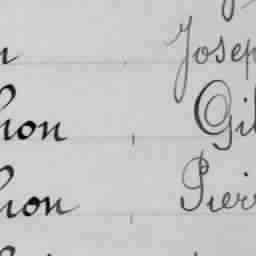 n Josep
hon Gil
hon Pierr